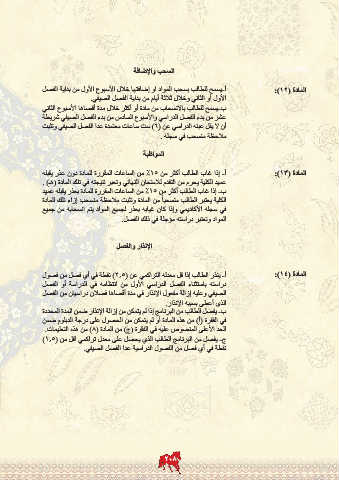 السحب والإضافة
المادة (١٢): أ-يسمح للطالب بسحب المواد او إضافتها خلال الأسبوع الأول من بداية الفصل
الأول أو الثاني وخلال ثلاثة أيام من بداية الفصل الصيفي.
ب-يسمح للطالب بالانسحاب من مادة أو أكثر خلال مدة أقصاها الأسبوع الثاني
عشر من بدء الفصل الدراسي والأسبوع السادس من بدء الفصل الصيفي شريطة
أن لا يقل عبئه الدراسي عن (٦) ست ساعات معتمدة عدا الفصل الصيفي وتثبت
ملاحظة منسحب في سجله.
المواظبة
المادة (١٣): أ- إذا غاب الطالب أكثر من ١٥٪ من الساعات المقررة للمادة دون عذر يقبله
عميد الكلية يحرم من التقدم للامتحان النهائي وتعتبر نتيجته في تلك المادة (هـ).
ب- إذا غاب الطالب أكثر من ١٥٪ من الساعات المقررة للمادة بعذر يقبله عميد
الكلية يعتبر الطالب منسحباً من المادة وتثبت ملاحظة منسحب إزاء تلك المادة
في سجله الأكاديمي وإذا كان غيابه بعذر لجميع المواد يتم انسحابه من جميع
المواد وتعتبر دراسته مؤجلة في ذلك الفصل.
الإنذار والفصل
المادة (١٤): أ- ينذر الطالب إذا قل معدله التراكمي عن (٢,٥) نقطة في أي فصل من فصول
دراسته باستثناء الفصل الدراسي الأول من انتظامه في الدراسة أو الفصل
الصيفي وعليه إزالة مفعول الإنذار في مدة أقصاها فصلان دراسيان من الفصل
الذي أعطي بسببه الإنذار.
ب- يفصل الطالب من البرنامج إذا لم يتمكن من إزالة الإنذار ضمن المدة المحددة
في الفقرة (أ) من هذه المادة أو لم يتمكن من الحصول على درجة الدبلوم ضمن
الحد الأعلى المنصوص عليه في الفقرة (ج) من المادة (٨) من هذه التعليمات.
ج- يفصل من البرنامج الطالب الذي يحصل على معدل تراكمي أقل من (١,٥)
نقطة في أي فصل من الفصول الدراسية عدا الفصل الصيفي.